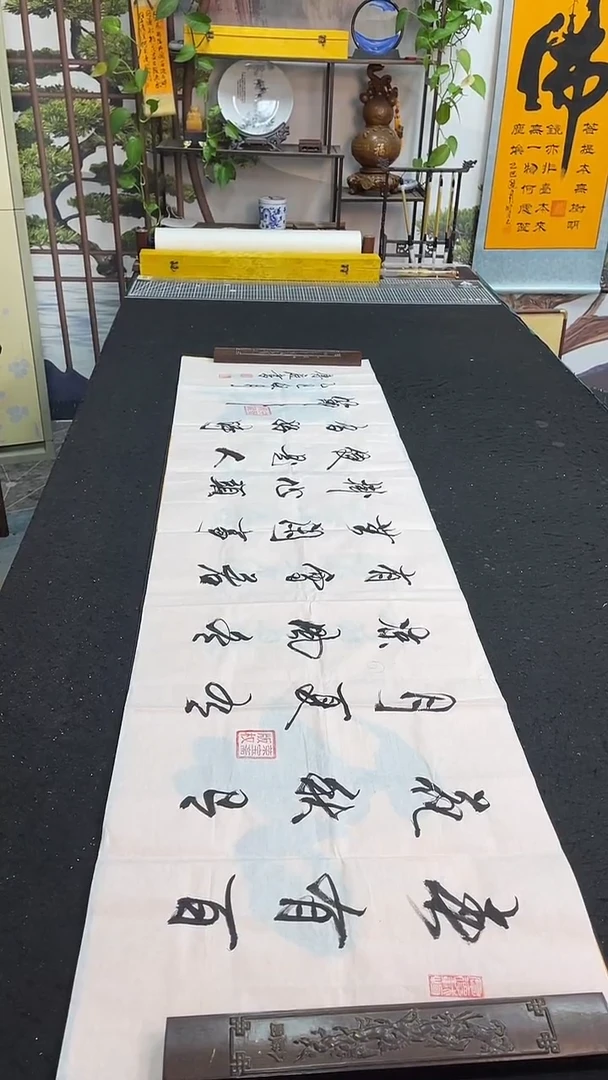 佛
菩提本無樹明
鏡亦非臺本来
無一物何處惹
塵埃
春有百
花秋有
月夏有
凉風冬
有雪若
無閑事
掛心頭
便是人
間好時
節